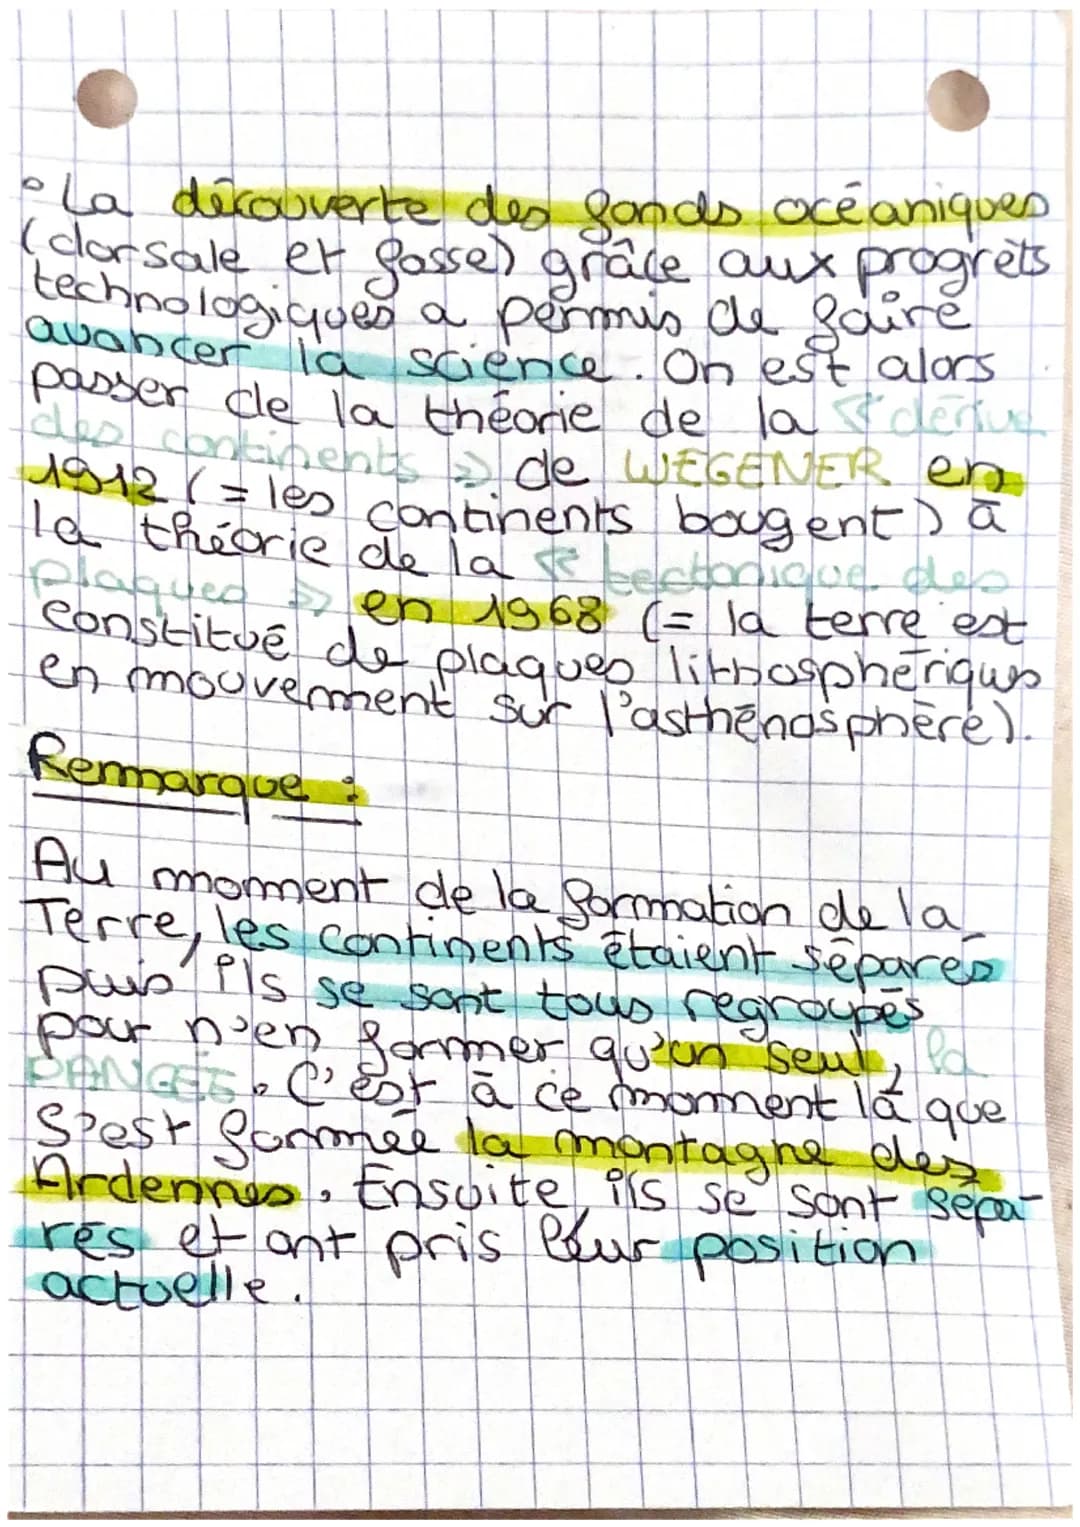 ° La découverte des fonds océaniques
(dorsale et fosse) grâce aux progrèts
technologiques a permis de faire
avancer la science. On est alors
passer de la théorie de la « dérive
des continents » de WEGENER en
1912 (= les continents bougent) à
la théorie de la « tectonique des
plaques » en 1968 (= la terre est
constitué de plaques lithosphériques
en mouvement sur l'asthénosphère).
Remarque :
Au moment de la formation de la
Terre, les continents étaient séparés
puis ils se sont tous regroupés
pour n'en former qu'un seul, la
PANGÉE. C'est à ce moment là que
s'est formée la montagne des
Ardennes. Ensuite, ils se sont sépa-
rés et ont pris leur position
actuelle.